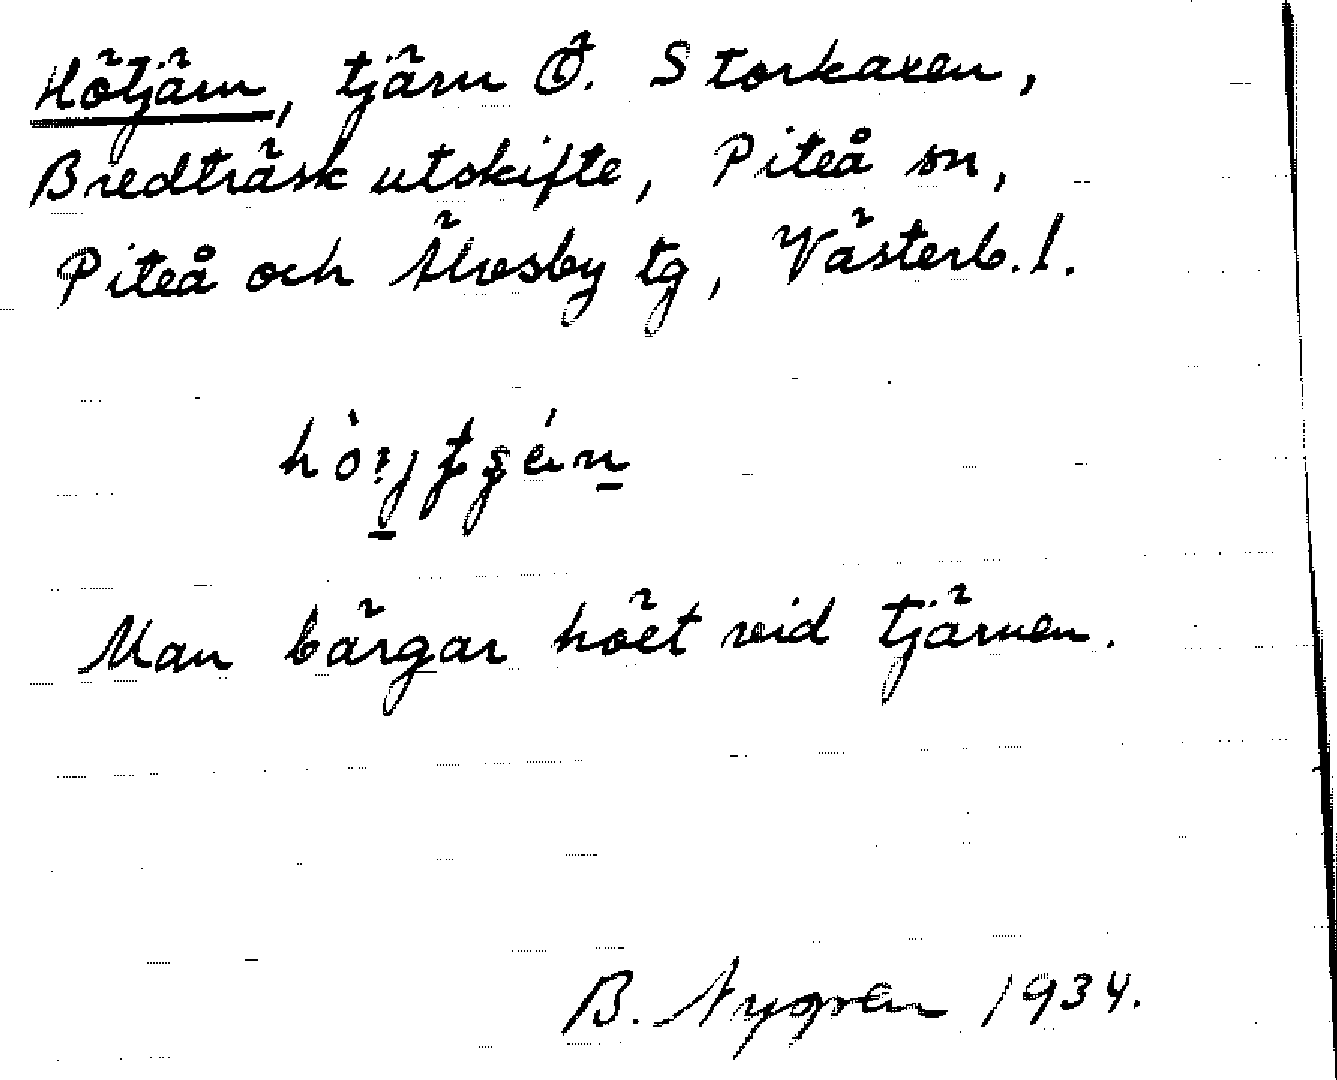 Hötjärn, tjärn Ö. Storkaxen,
Bredträsk utskifte, Piteå sn,
Piteå och Älvsby tg, Västerb.l.
Man bärgar höet vid tjärnen.
B. Nygren 1934.